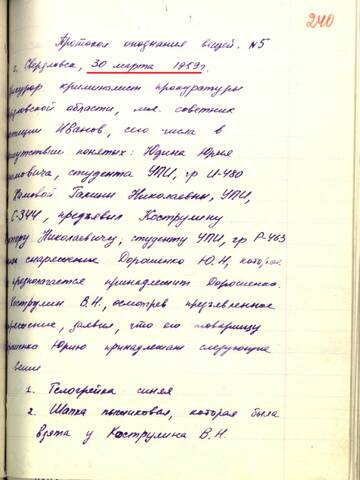 240
Протокол опознания вещей. №5
г. Свердловск, 30 марта 1959г.
прокурор криминалист прокуратуры
рдловской области, мл. советник
юстиции Иванов, сего числа в
присутствии понятых: Юдина Юрия
студента УПИ, гр И-480
Галины Николаевны, УПИ,
С-344, предъявил Кострулину
Николаевичу, студенту УПИ, гр Р-463
снаряжение Дорошенко Ю.Н, которое
предполагается принадлежит Дорошенко.
Кострулин В.Н., осмотрев предъявленное
снаряжение, заявил, что его товарищу
Юрию принадлежат следующие
вещи
1. Телогрейка синяя
2. Шапка пыжиковая, которая была
взята у Кострулина В.Н.